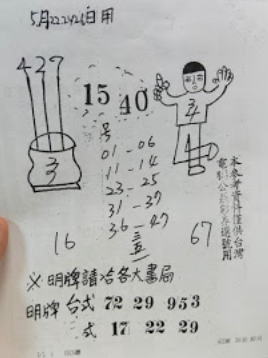 5月22.24.26日用
427
3
15 40
3
4
1
号
01-06
11-14
23-25
31-37
36-47
16
67
本參考資料僅供台灣
電腦公益彩券選號用
※明牌請洽各大書局
明牌 台式 72 29 953
式 17 22 29